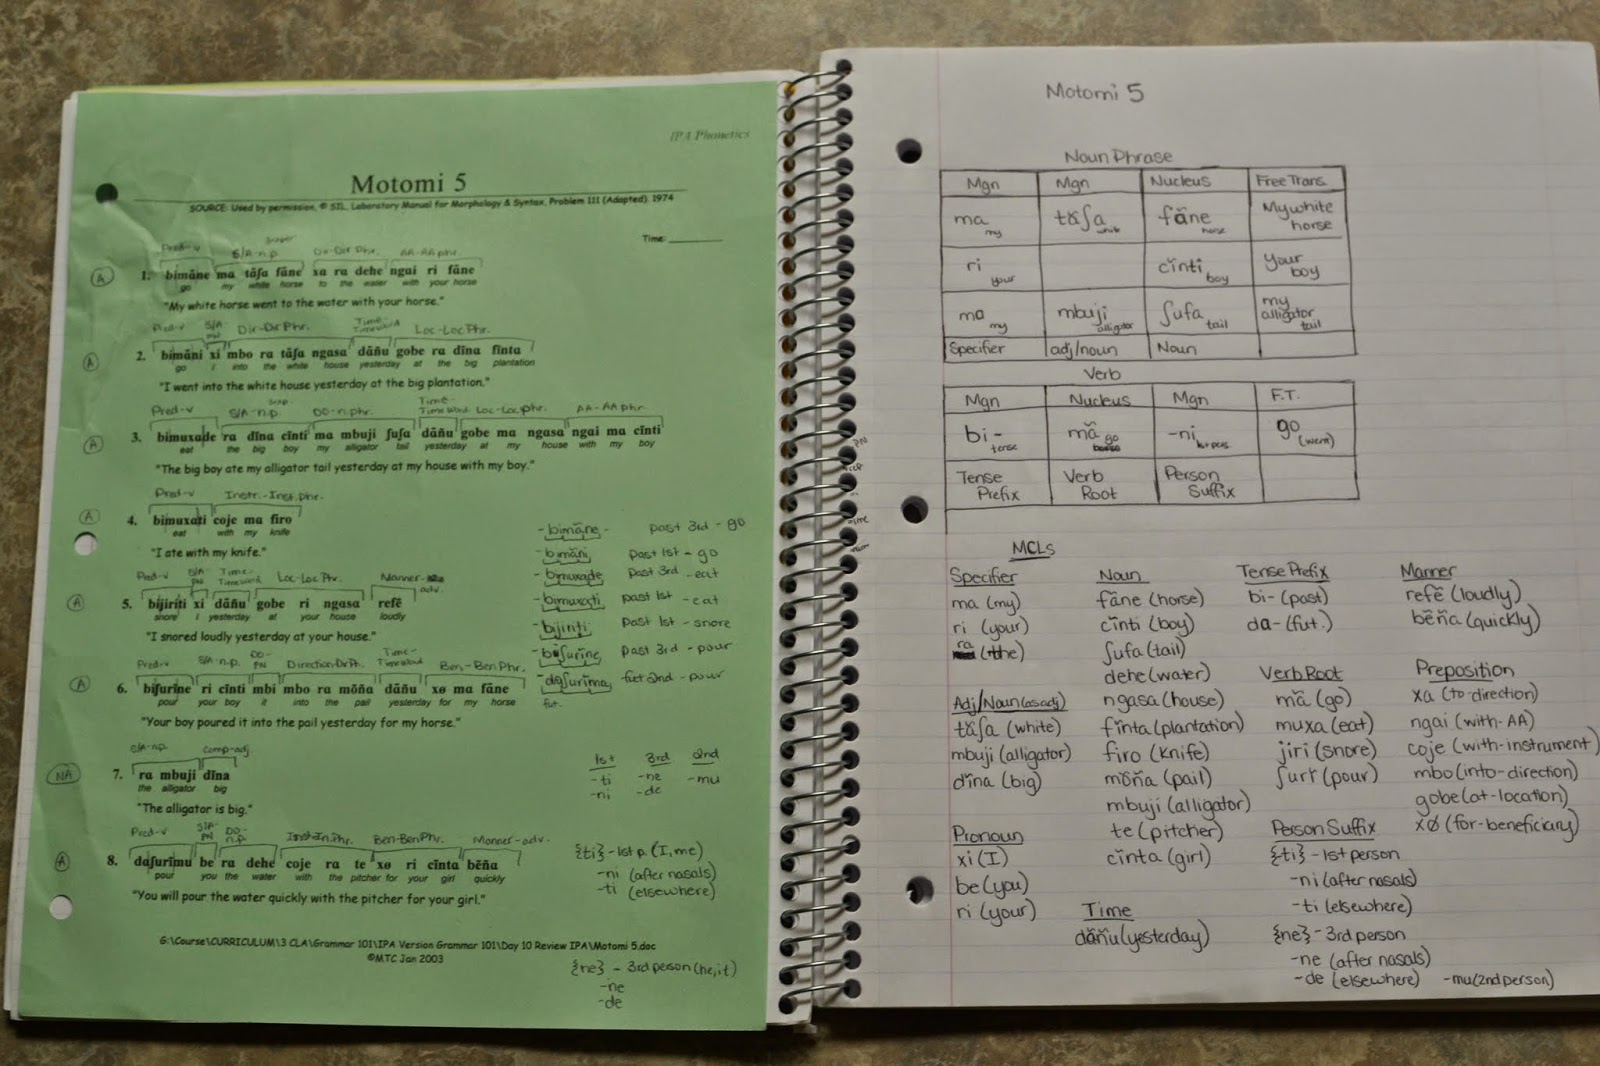 IPA Phonetics
Motomi 5
SOURCE: Used by permission, © SIL, Laboratory Manual for Morphology & Syntax, Problem 111 (Adapted). 1974
Time:
Pred-v S/A-n.p. Dir-Dir Phr. AA-AA phr.
A 1. bimãne ma tãʃa fãne xa ra dehe ngai ri fãne
go my white horse to the water with your horse
"My white horse went to the water with your horse."
Pred-v S/A-PN Dir-Dir Phr. Time-Time Word Loc-Loc Phr.
A 2. bimãni xi mbo ra tãʃa ngasa dãñu gobe ra dĩna fĩnta
go I into the white house yesterday at the big plantation
"I went into the white house yesterday at the big plantation."
Pred-v S/A-n.p. DO-n.phr. Time-Time Word Loc-Loc phr. AA-AA phr
A 3. bimuxade ra dĩna cĩnti ma mbuji ʃufa dãñu gobe ma ngasa ngai ma cĩnti
eat the big boy my alligator tail yesterday at my house with my boy
"The big boy ate my alligator tail yesterday at my house with my boy."
Pred-v Instr.-Inst.phr.
A 4. bimuxati coje ma firo
eat with my knife
"I ate with my knife."
Pred-v S/A-PN Time-Time Word Loc-Loc Phr. Manner-adv.
A 5. bijiriti xi dãñu gobe ri ngasa refẽ
snore I yesterday at your house loudly
"I snored loudly yesterday at your house."
Pred-v S/A-n.p. DO-PN Direction-Dir Ph. Time-Time Word Ben-Ben Phr.
A 6. biʃurĩne ri cĩnti mbi mbo ra mõña dãñu xø ma fãne
pour your boy it into the pail yesterday for my horse
"Your boy poured it into the pail yesterday for my horse."
S/A-n.p. Comp-adj
NA 7. ra mbuji dĩna
the alligator big
"The alligator is big."
Pred-v S/A-PN DO-n.p. Inst-In.Phr. Ben-Ben Phr. Manner-adv.
A 8. daʃurĩmu be ra dehe coje ra te xø ri cĩnta bẽña
pour you the water with the pitcher for your girl quickly
"You will pour the water quickly with the pitcher for your girl."
-bimãne- past 3rd - go
-bimãni past 1st - go
-bimuxade past 3rd - eat
-bimuxati past 1st - eat
-bijiriti past 1st - snore
-biʃurĩne past 3rd - pour
-daʃurĩma fut 2nd - pour
fut.
1st 3rd 2nd
-ti -ne -mu
-ni -de
{ti} - 1st p. (I, me)
-ni (after nasals)
-ti (elsewhere)
G:\Course\CURRICULUM\3 CLA\Grammar 101\IPA Version Grammar 101\Day 10 Review IPA\Motomi 5.doc
©MTC Jan 2003
{ne} - 3rd person (he, it)
-ne
-de
Motomi 5
Noun Phrase
Mgn Mgn Nucleus Free Trans.
ma my tãʃa white fãne horse My white horse
ri your cĩnti boy your boy
ma my mbuji alligator ʃufa tail my alligator tail
Specifier adj/noun Noun
Verb
Mgn Nucleus Mgn F.T.
bi- tense mã go -ni 1st pers go (went)
Tense Prefix Verb Root Person Suffix
MCLs
Specifier Noun Tense Prefix Manner
ma (my) fãne (horse) bi- (past) refẽ (loudly)
ri (your) cĩnti (boy) da- (fut.) bẽña (quickly)
ra (the) ʃufa (tail)
dehe (water) Verb Root Preposition
Adj/Noun (as adj) ngasa (house) mã (go) xa (to-direction)
tãʃa (white) fĩnta (plantation) muxa (eat) ngai (with-AA)
mbuji (alligator) firo (knife) jiri (snore) coje (with-instrument)
dĩna (big) mõña (pail) ʃurĩ (pour) mbo (into-direction)
mbuji (alligator) gobe (at-location)
Pronoun te (pitcher) Person Suffix xø (for-beneficiary)
xi (I) cĩnta (girl) {ti} - 1st person
be (you) -ni (after nasals)
ri (your) Time -ti (elsewhere)
dãñu (yesterday) {ne} - 3rd person
-ne (after nasals)
-de (elsewhere) -mu (2nd person)